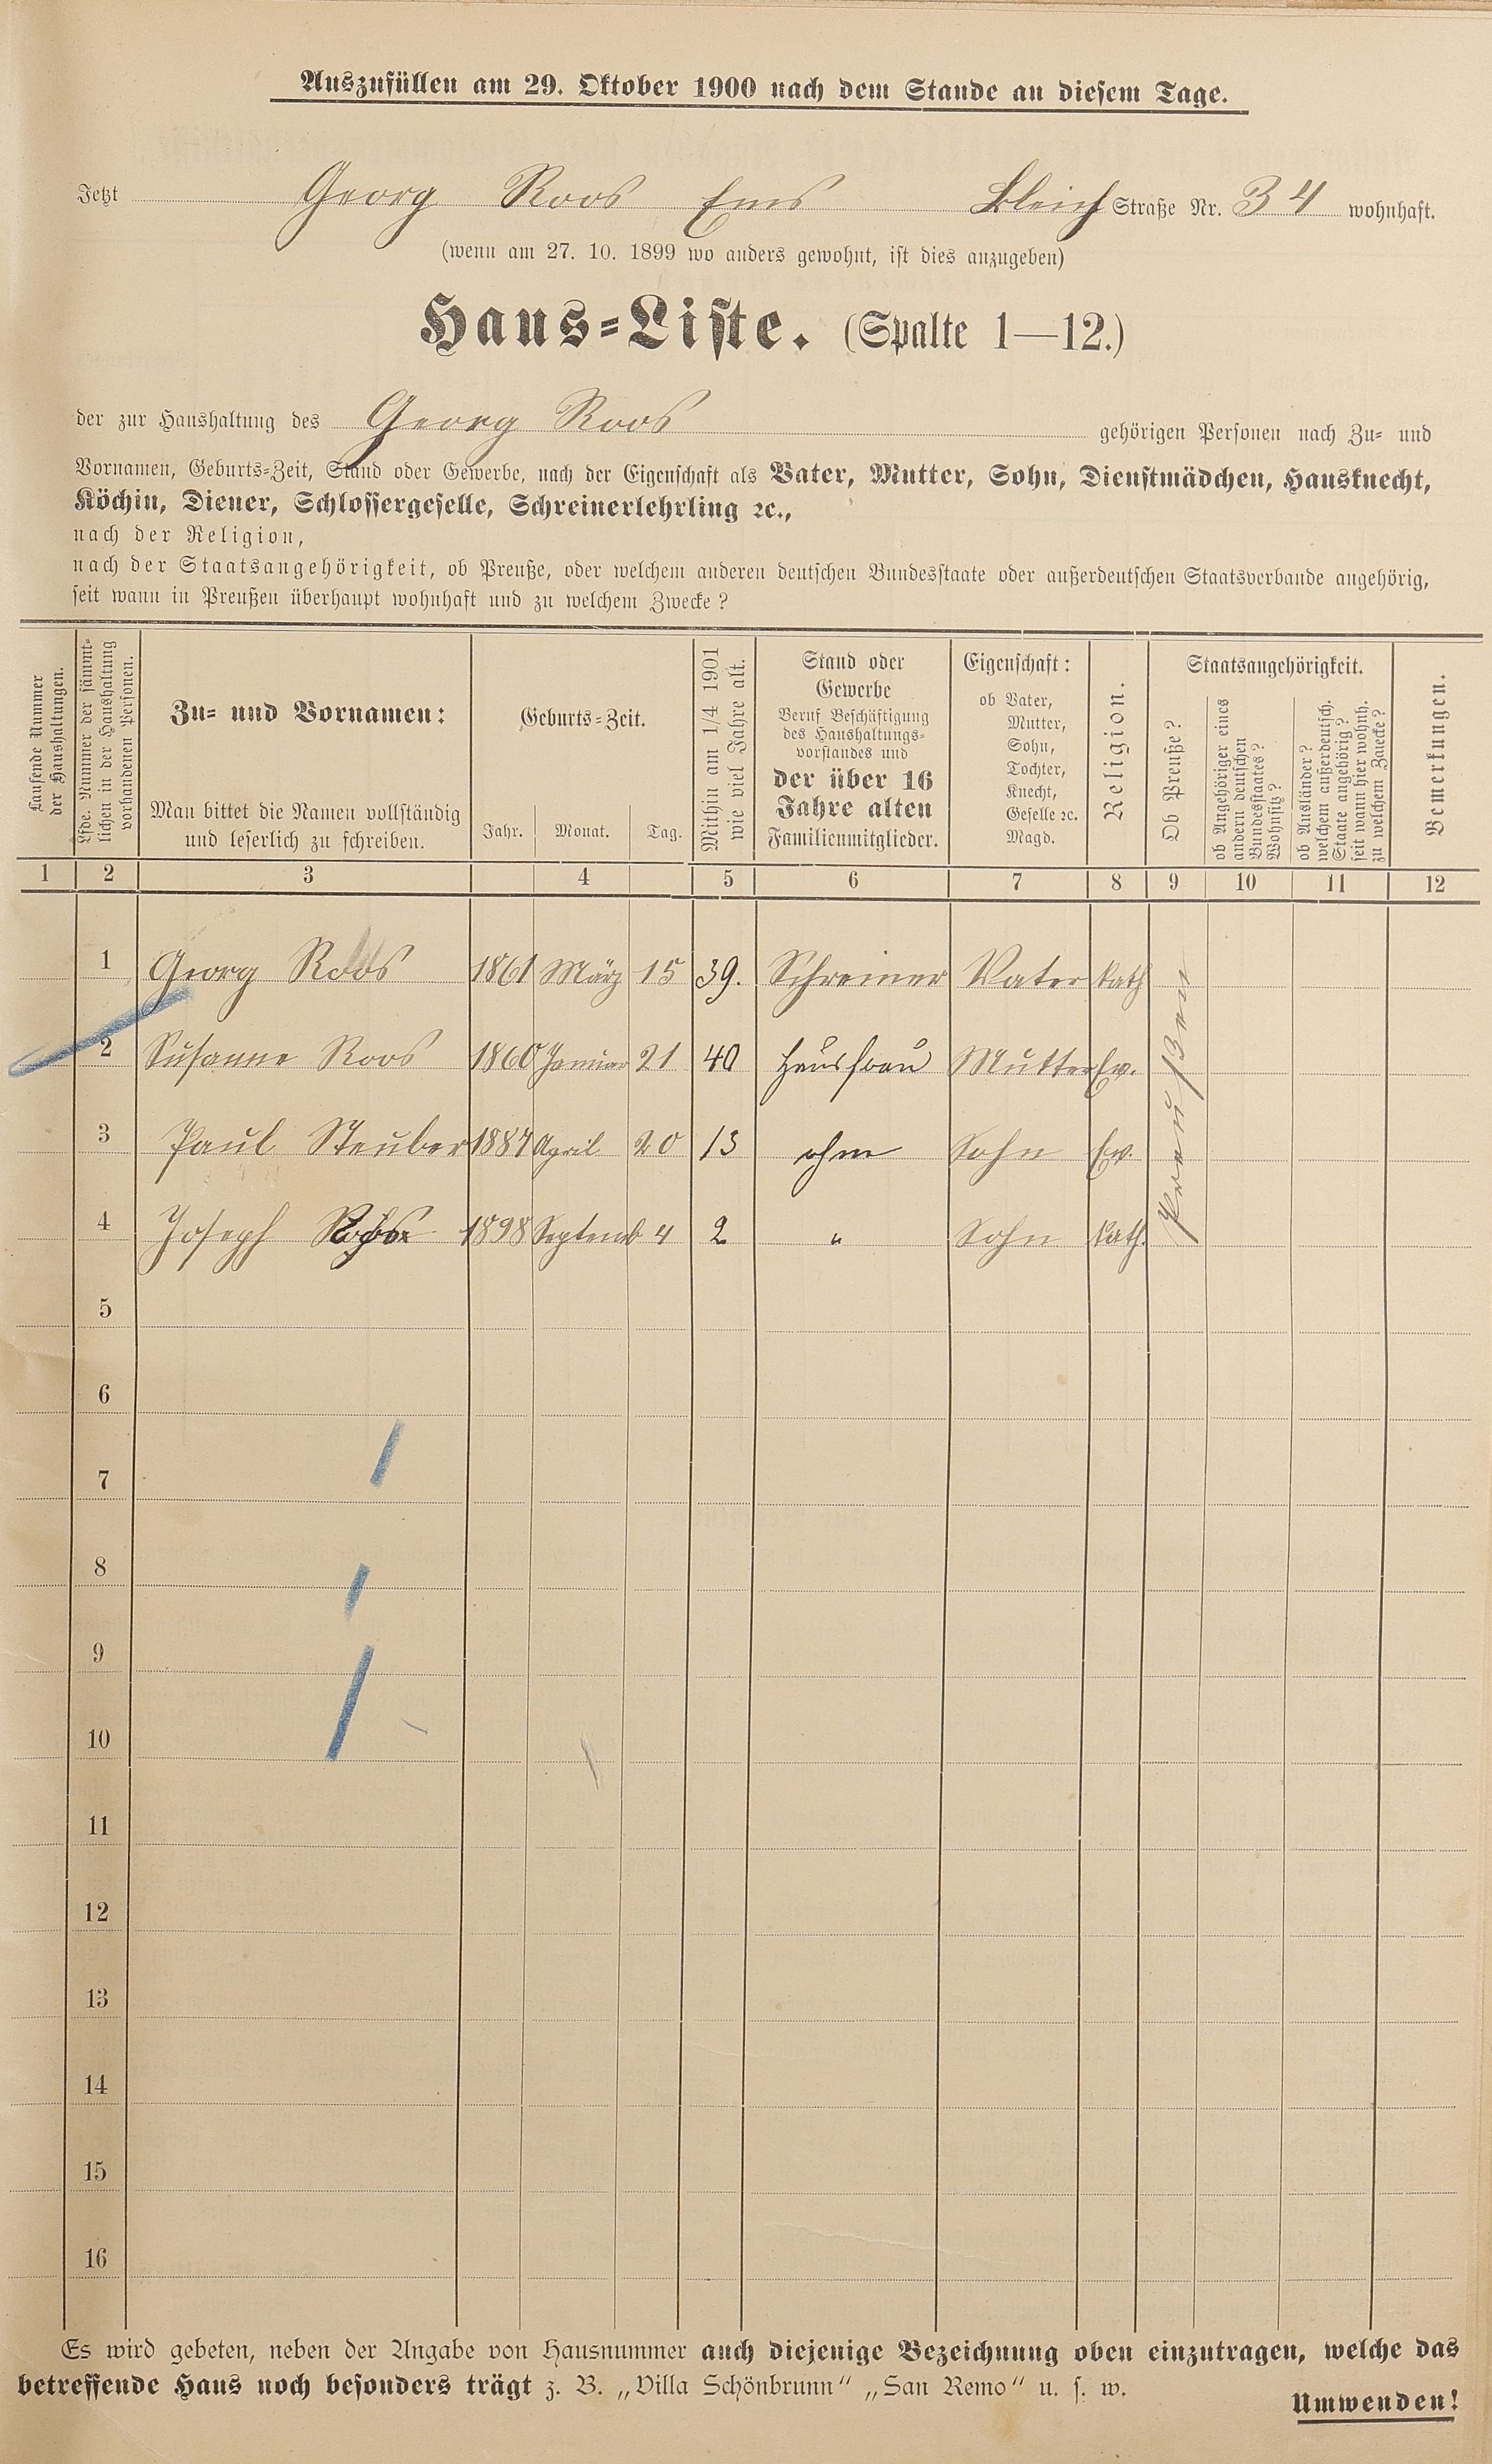 Auszufüllen am 29. Oktober 1900 nach dem Stande an diesem Tage.
Jetzt Georg Roos Ems Bleich Straße Nr. 34 wohnhaft.
(wenn am 27. 10. 1899 wo anders gewohnt, ist dies anzugeben)
Haus-Liste. (Spalte 1—12.)
der zur Haushaltung des Georg Roos gehörigen Personen nach Zu- und
Vornamen, Geburts-Zeit, Stand oder Gewerbe, nach der Eigenschaft als Vater, Mutter, Sohn, Dienstmädchen, Hausknecht,
Köchin, Diener, Schlossergeselle, Schreinerlehrling ꝛc.,
nach der Religion,
nach der Staatsangehörigkeit, ob Preuße, oder welchem anderen deutschen Bundesstaate oder außerdeutschen Staatsverbande angehörig,
seit wann in Preußen überhaupt wohnhaft und zu welchem Zwecke?
Laufende Nummer
der Haushaltungen.
Lfde. Nummer der sämmt-
lichen in der Haushaltung
vorhandenen Personen.
Zu- und Vornamen:
Man bittet die Namen vollständig
und leserlich zu schreiben.
Geburts-Zeit.
Jahr. Monat. Tag.
Mithin am 1/4 1901
wie viel Jahre alt.
Stand oder
Gewerbe
Beruf Beschäftigung
des Haushaltungs-
vorstandes und
der über 16
Jahre alten
Familienmitglieder.
Eigenschaft:
ob Vater,
Mutter,
Sohn,
Tochter,
Knecht,
Geselle ꝛc.
Magd.
Religion.
Staatsangehörigkeit.
Ob Preuße?
ob Angehöriger eines
andern deutschen
Bundesstaates?
Wohnsitz?
ob Ausländer?
welchem außerdeutsch.
Staate angehörig?
seit wann hier wohnh.
zu welchem Zwecke?
Bemerkungen.
1 2 3 4 5 6 7 8 9 10 11 12
1 Georg Roos 1861 März 15 39. Schreiner Vater kath
2 Susanne Roos 1860 Januar 21 40 Hausfrau Mutter Ev.
3 Paul Steuber 1887 April 20 13 ohne Sohn Ev.
4 Joseph Roos 1898 Septemb 4 2 " Sohn kath.
Preußen
5
6
7
8
9
10
11
12
13
14
15
16
Es wird gebeten, neben der Angabe von Hausnummer auch diejenige Bezeichnung oben einzutragen, welche das
betreffende Haus noch besonders trägt z. B. „Villa Schönbrunn“ „San Remo“ u. s. w.
Umwenden!